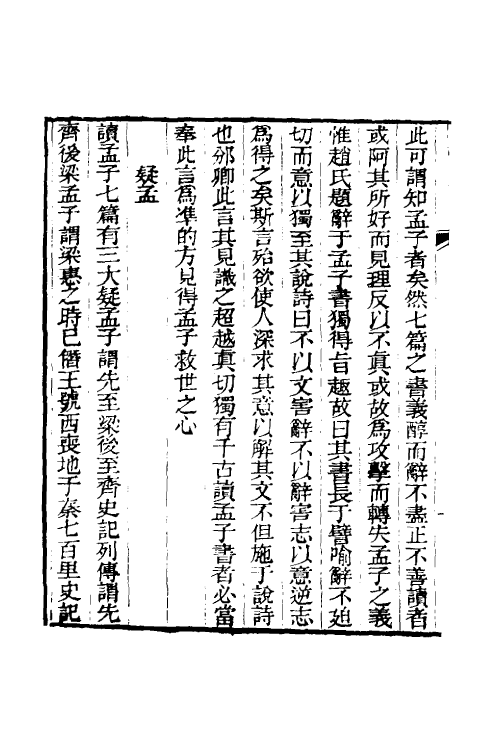 此可謂知孟子者矣然七篇之書義醇而辭不盡正不善讀者
或阿其所好而見理反以不真或故為攻擊而轉失孟子之義
惟趙氏題辭于孟子書獨得旨趣故曰其書長于譬喻辭不廹
切而意以獨至其說詩曰不以文害辭不以辭害志以意逆志
為得之矣斯言殆欲使人深求其意以解其文不但施于說詩
也邠卿此言其見識之超越真切獨有千古讀孟子書者必當
奉此言為準的方見得孟子救世之心
疑孟
讀孟子七篇有三大疑孟子謂先至梁後至齊史記列傳謂先
齊後梁孟子謂梁惠之時已僭王號西喪地于秦七百里史記